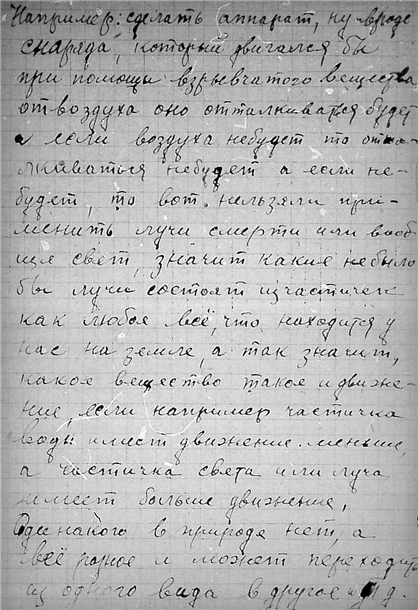 Например: сделать аппарат, ну вроде
снаряда, который двигался бы
при помощи взрывчатого вещества
от воздуха оно отталкиваться будет
а если воздуха небудет то отта-
лкиваться небудет а если не-
будет, то вот нельзяли при-
менить лучи смерти или вооб-
ще свет, значит какие небыло
бы лучи состоят изчастичек
как любое всё, что, находится у
нас на земле, а так значит,
какое вещество такое и движе-
ние, если например частичка
воды имеет движение меньше,
а частичка света или луча
имеет больше движение,
Одинакого в природе нет, а
всё разное и может переходить
из одного вида в другое и т д.